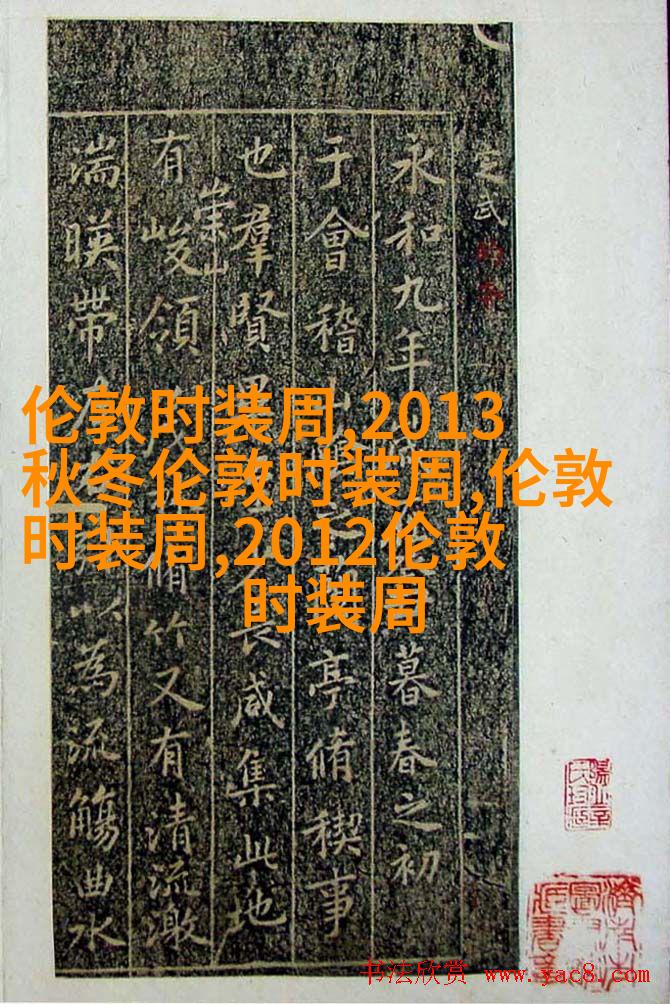 伦敦时装周,2013
秋冬伦敦时装周,伦敦
时装周,2012伦敦
时装周
定武
永和九年暮春之初
于會稽山亭脩稧事
也羣賢長咸集此地
有崇山峻領脩竹又有清流激
湍暎帶以為流觴曲水
书法欣赏 www.yac8.com